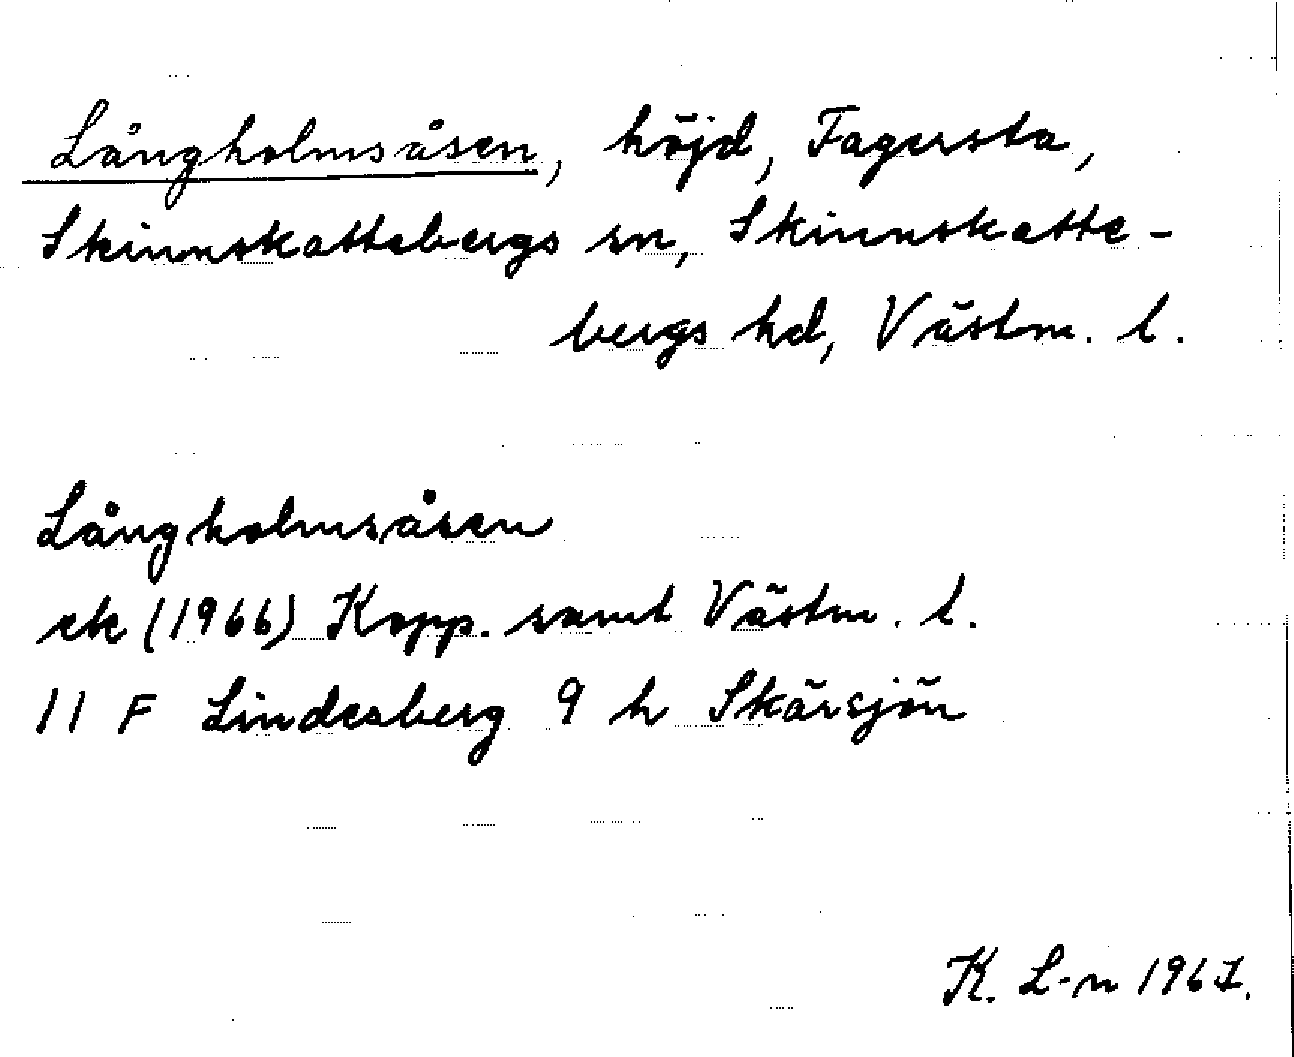 Långholmsåsen, höjd, Fagersta,
Skinnskattebergs sn, Skinnskatte-
bergs hd, Västm. l.
Långholmsåsen
ek (1966) Kopp. samt Västm. l.
11 F Lindesberg 9 h Skärsjön
K. L-n 1967.